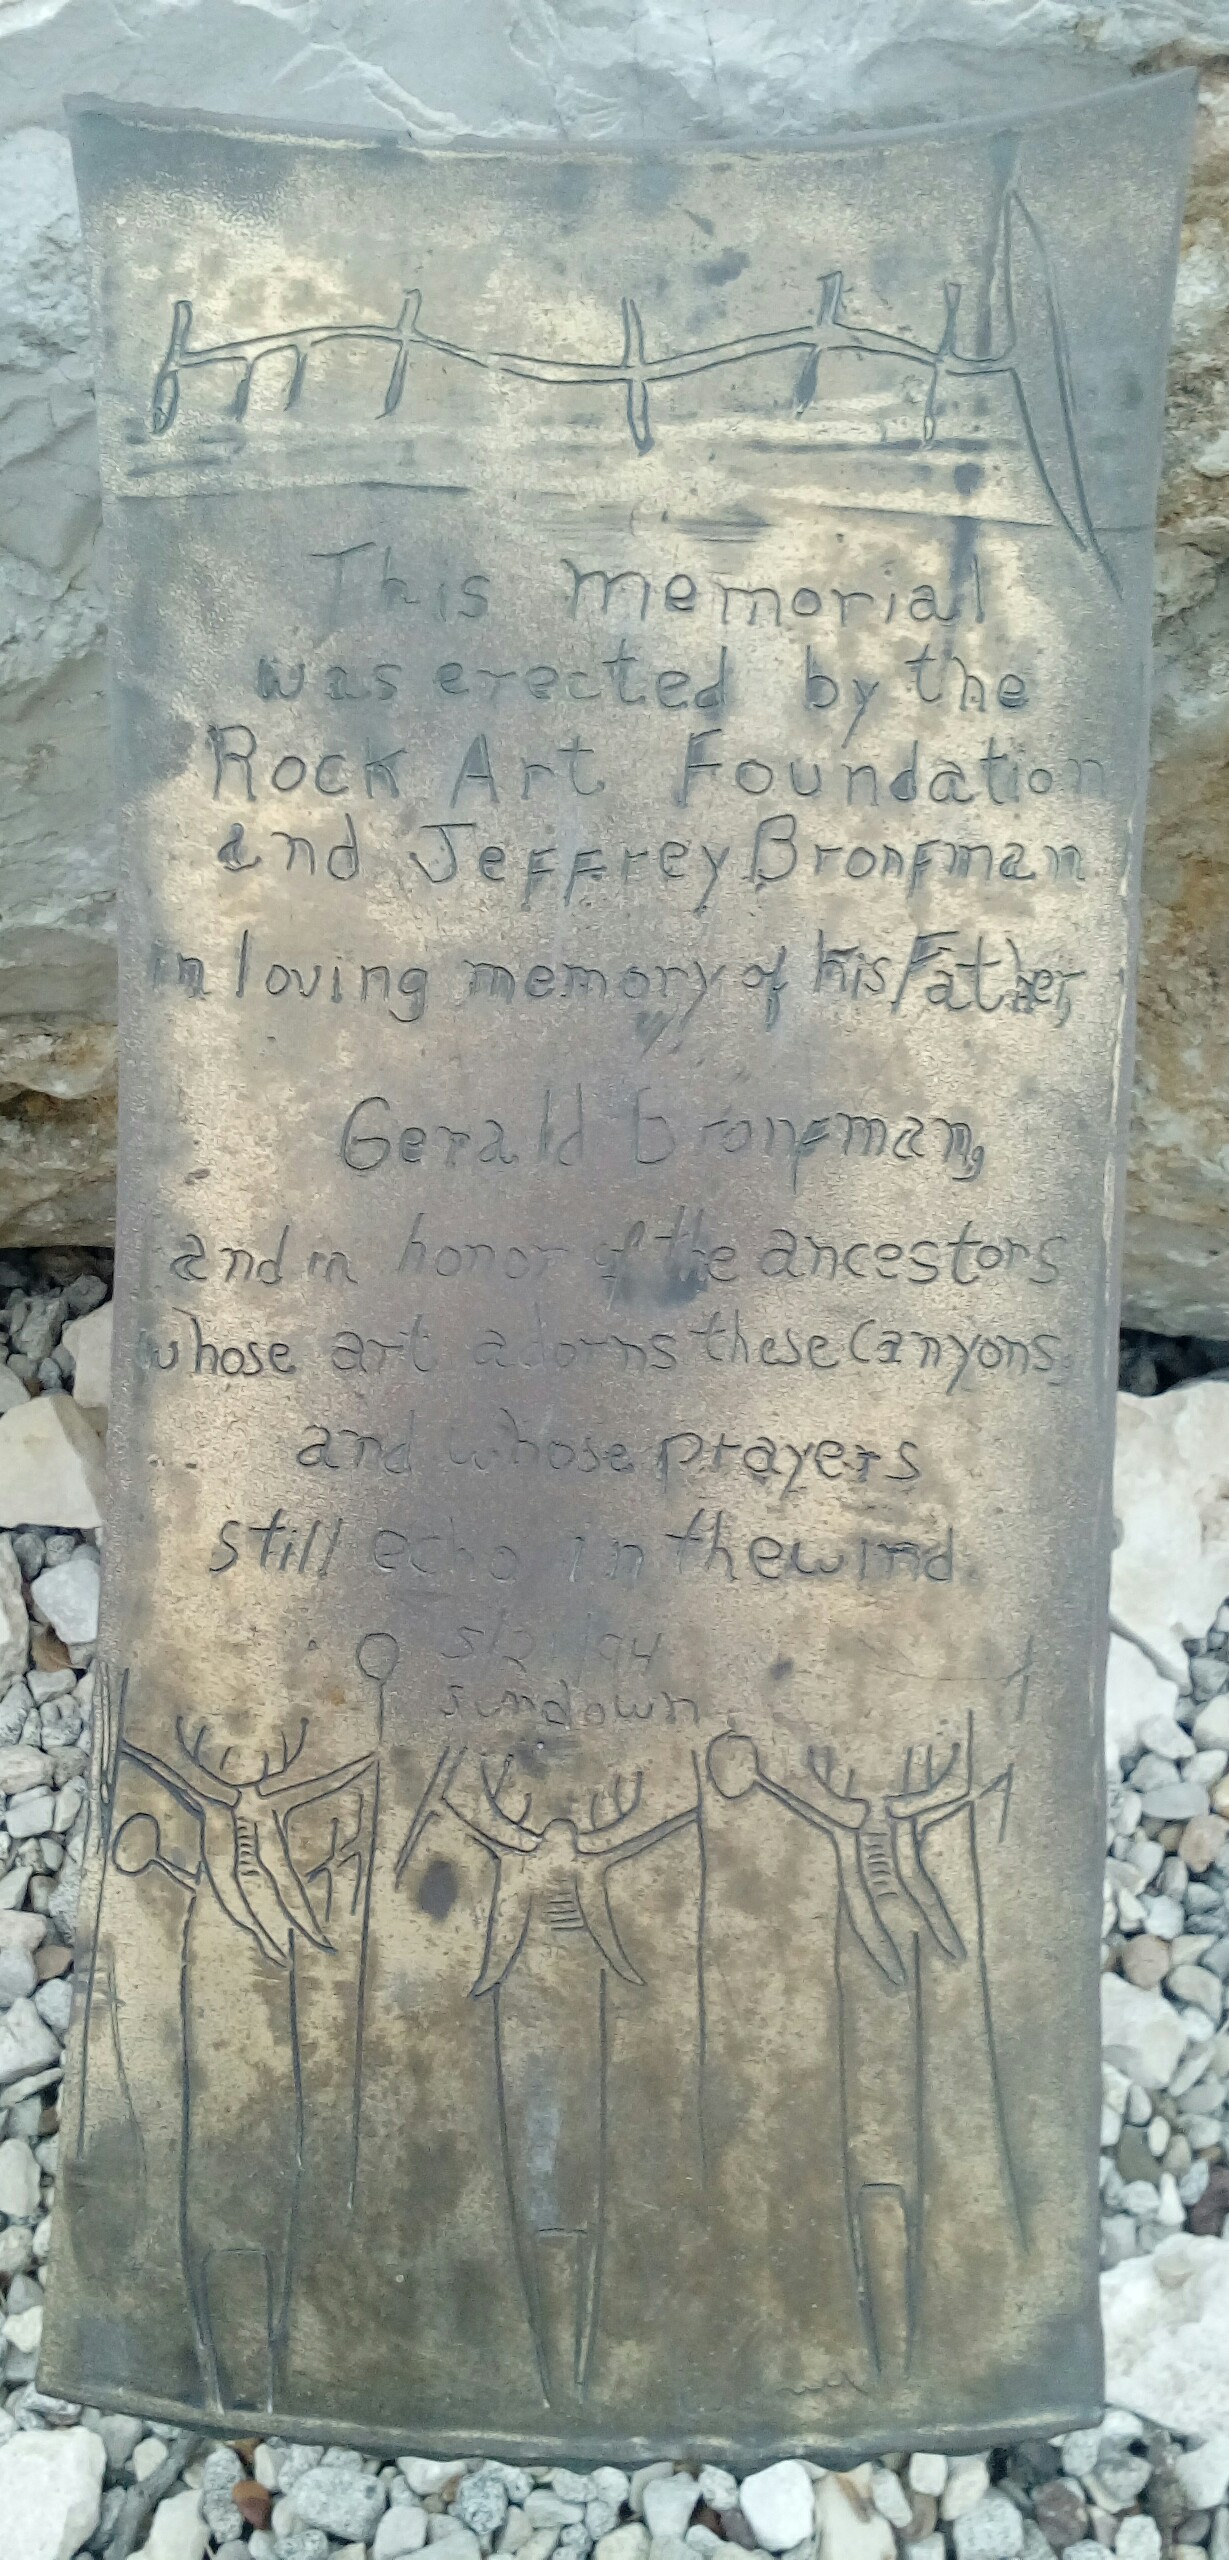 This memorial
was erected by the
Rock Art Foundation
and Jeffrey Bronfman
in loving memory of his Father,
Gerald Bronfman,
and in honor of the ancestors
whose art adorns these Canyons,
and whose prayers
still echo in the wind.
sundown